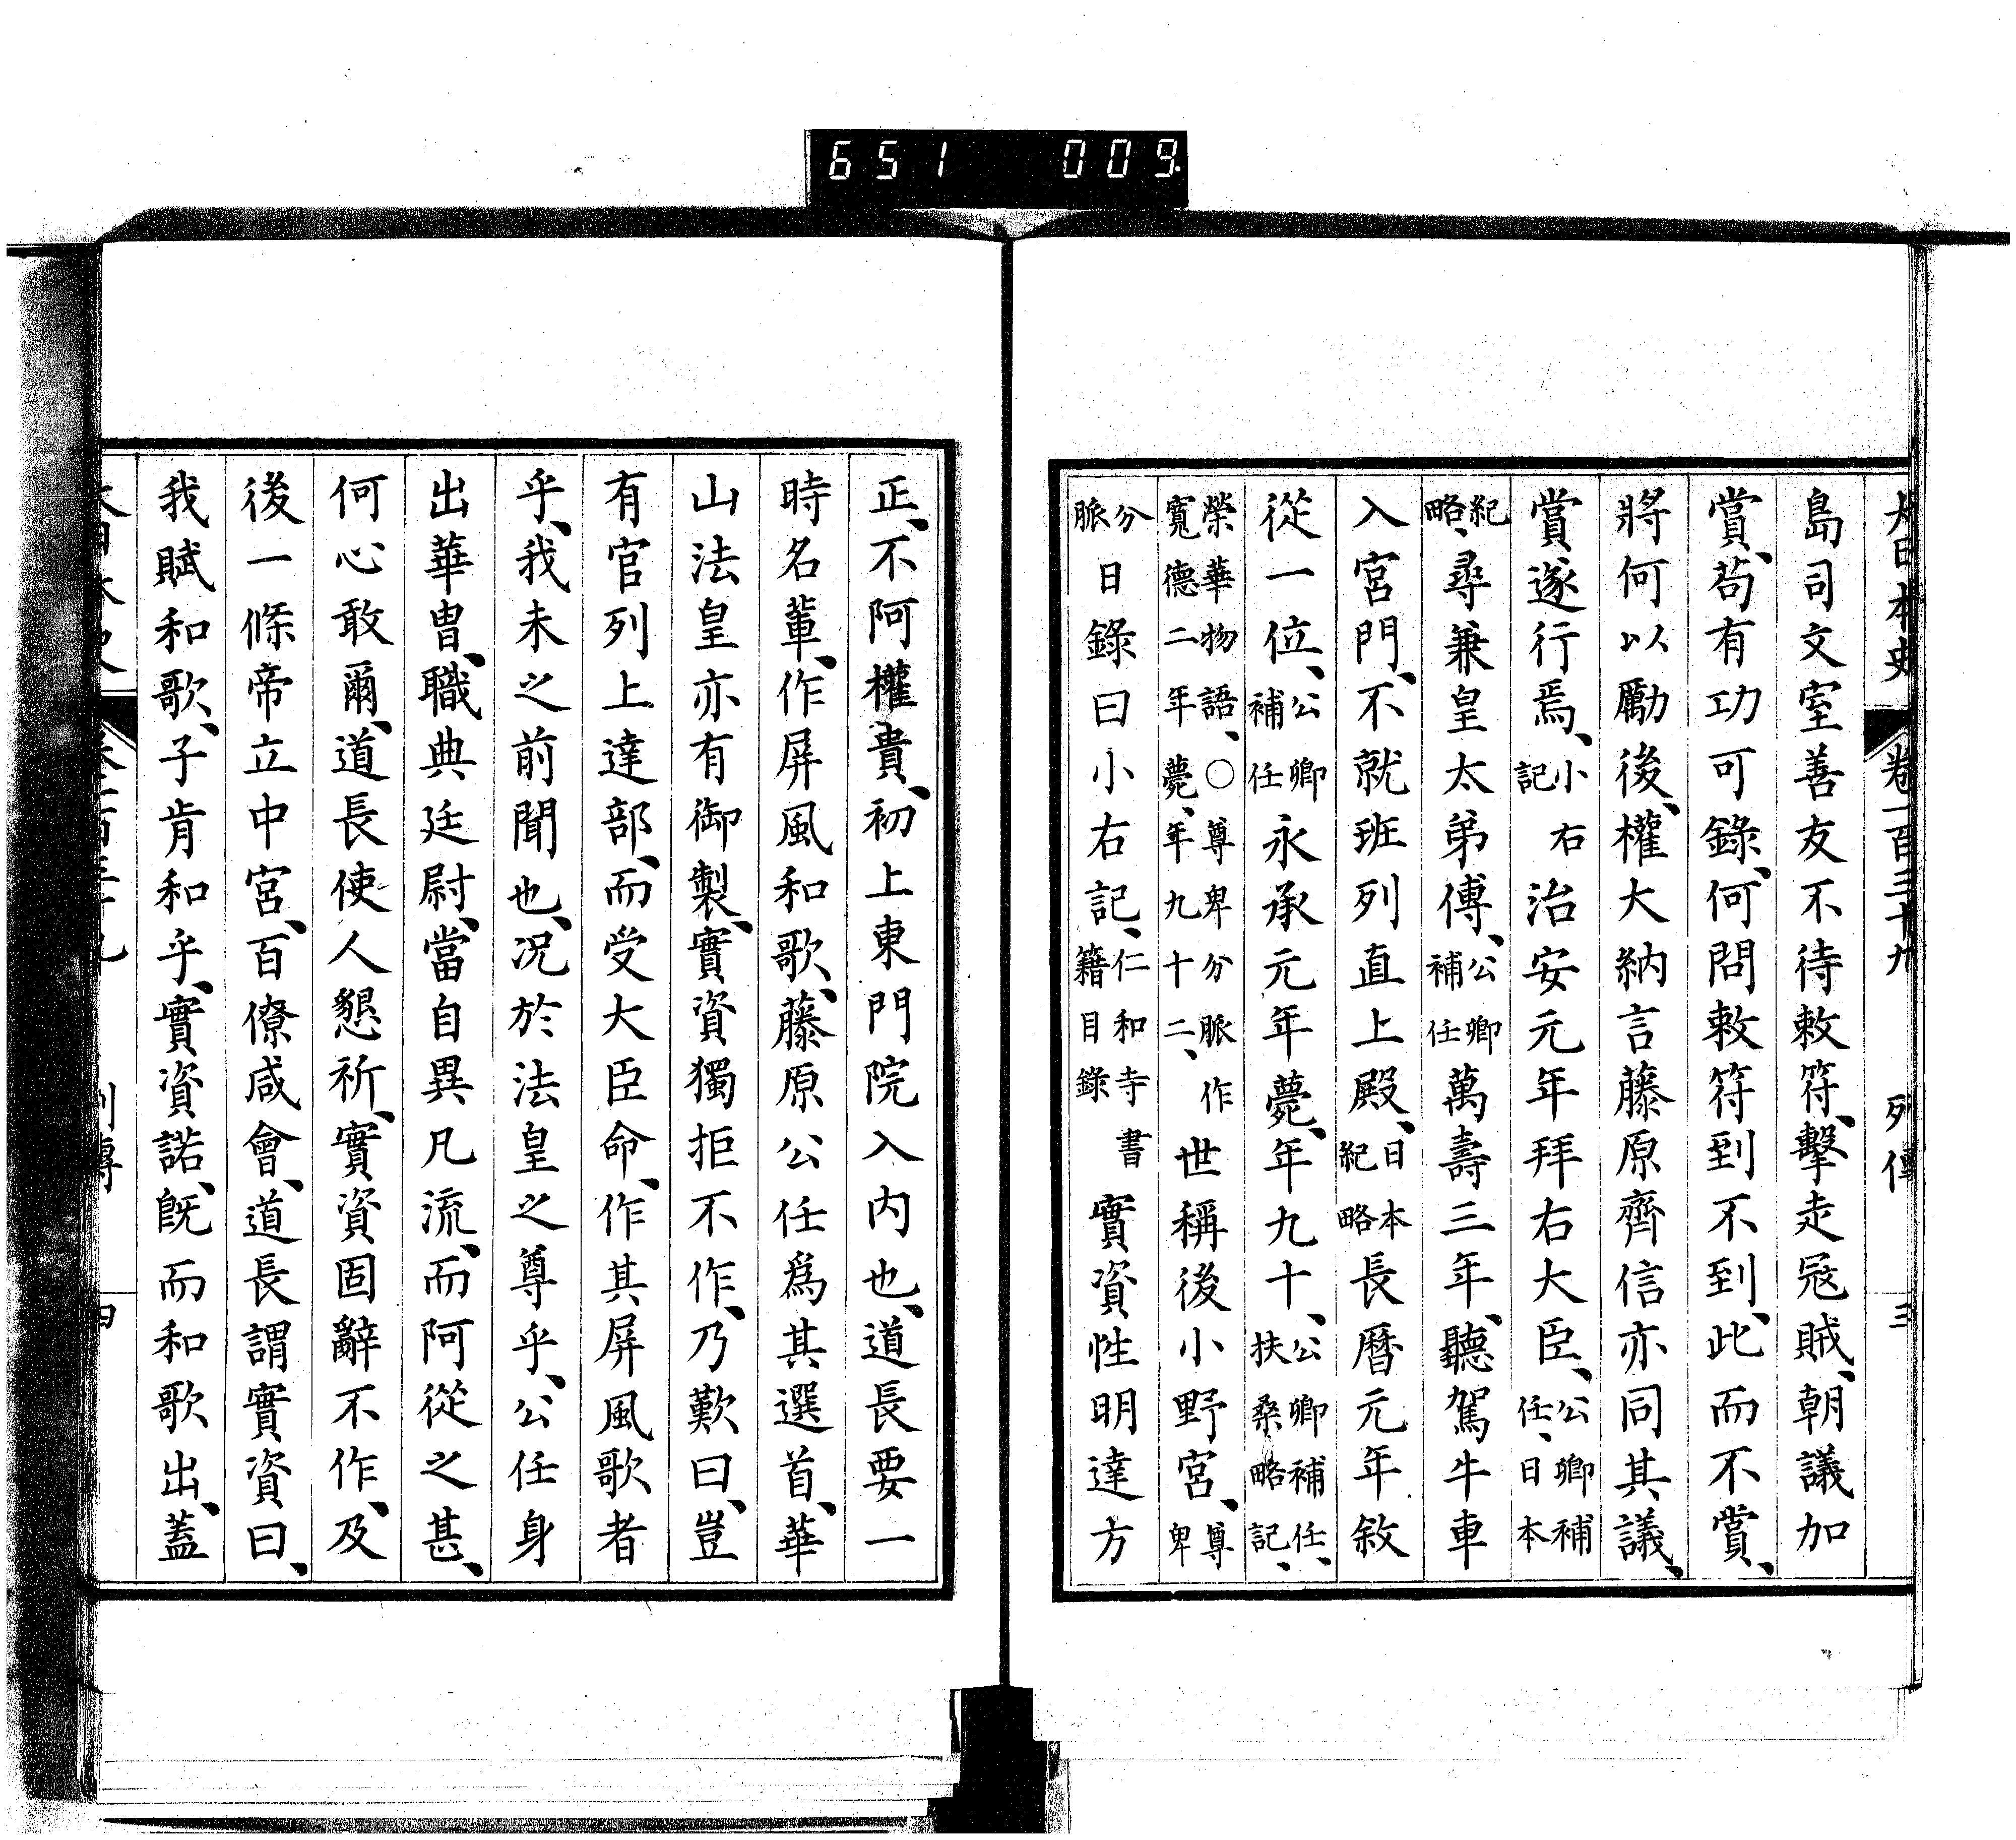 651 009
大日本史 卷一百三十九 列傳 三
島司文室善友不待敕符、擊走冦賊、朝議加
賞、苟有功可錄、何問敕符到不到、此而不賞、
將何以勵後、權大納言藤原齊信亦同其議、
賞遂行焉、小右記治安元年拜右大臣、公卿補任、日本
紀略、尋兼皇太弟傅、公卿補任萬壽三年、聽駕牛車
入宮門、不就班列直上殿、日本紀略長曆元年敘
從一位、公卿補任永承元年薨、年九十、公卿補任、扶桑略記、
榮華物語、○尊卑分脈作寬德二年薨、年九十二、世稱後小野宮、尊卑
分脈日錄曰小右記、仁和寺書籍目錄實資性明達方
正、不阿權貴、初上東門院入内也、道長要一
時名輩、作屏風和歌、藤原公任爲其選首、華
山法皇亦有御製、實資獨拒不作、乃歎曰、豈
有官列上達部、而受大臣命、作其屏風歌者
乎、我未之前聞也、况於法皇之尊乎、公任身
出華冑、職典廷尉、當自異凡流、而阿從之甚、
何心敢爾、道長使人懇祈、實資固辭不作、及
後一條帝立中宮、百僚咸會、道長謂實資曰、
我賦和歌、子肯和乎、實資諾、旣而和歌出、蓋